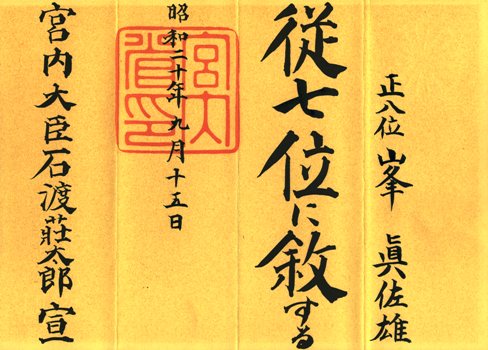 正八位 峯 眞佐雄
従七位に敘する
昭和二十年九月十五日
宮内大臣石渡莊太郎 宣
宮内省印